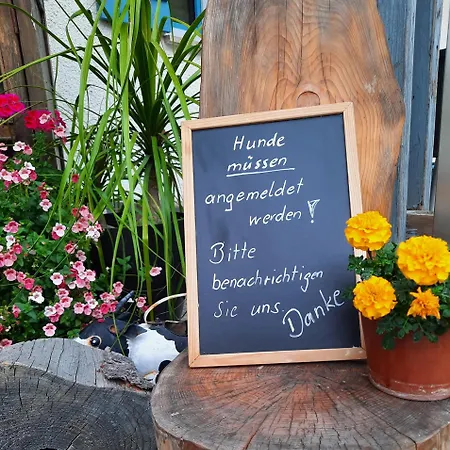 Hunde
müssen
angemeldet
werden!
Bitte
benachrichtigen
Sie uns. Danke